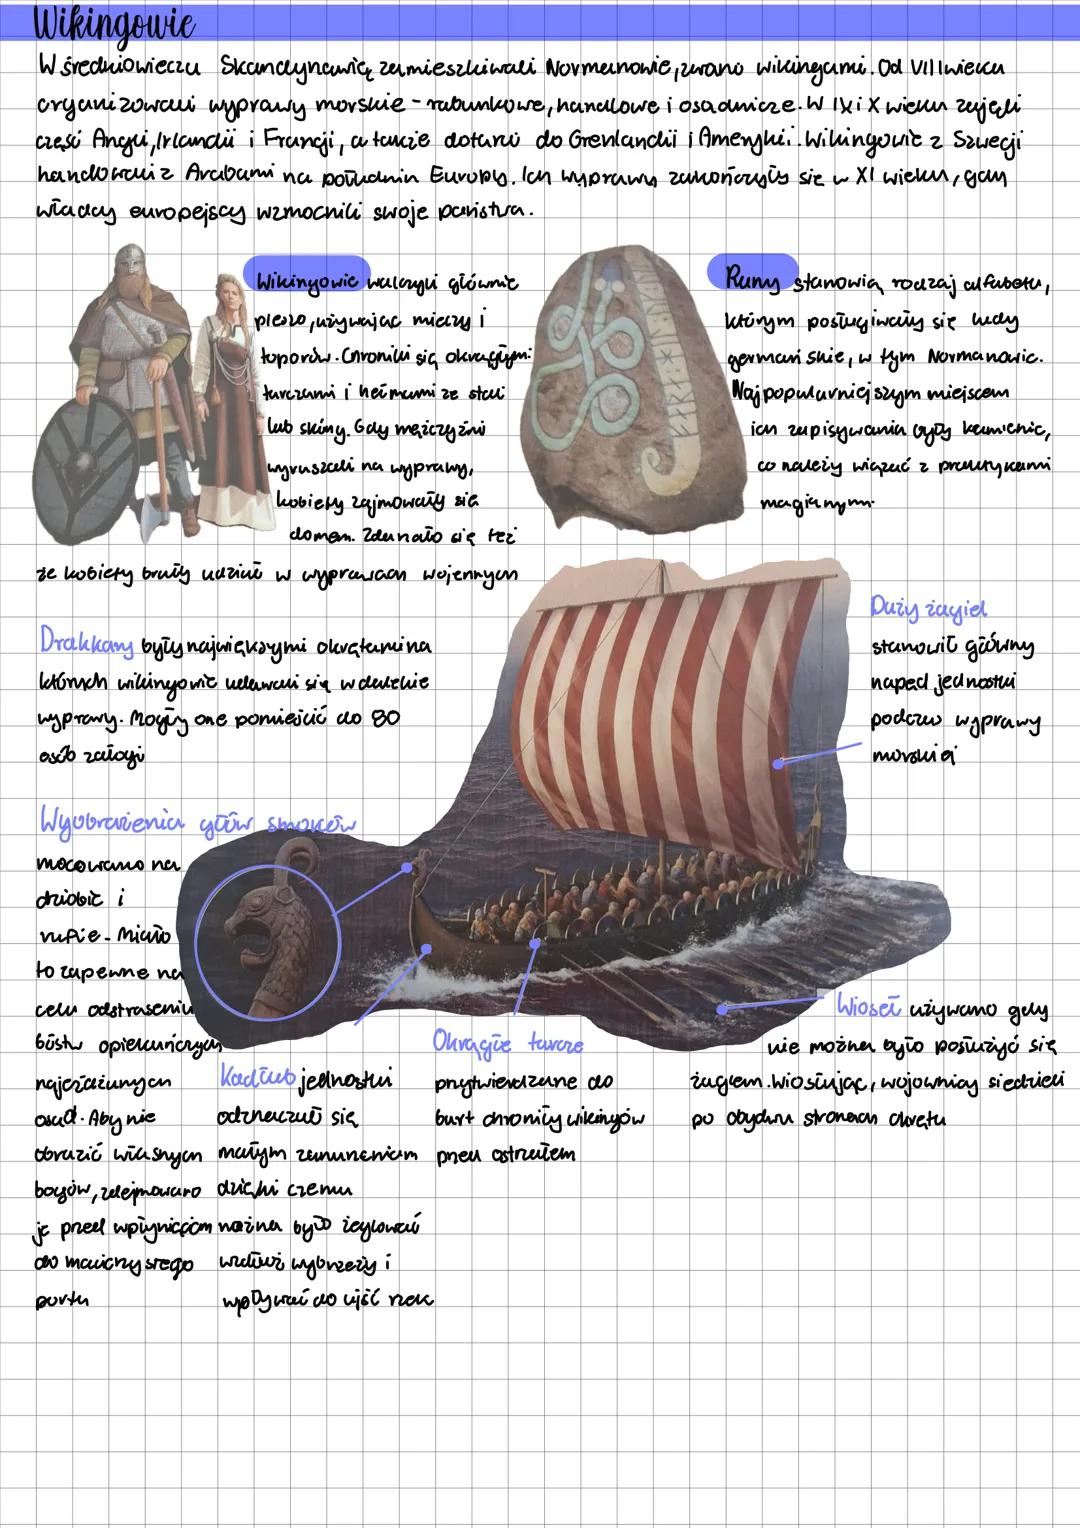 Wikingowie
W średniowieczu Skandynawię zamieszkiwali Normanowie, zwano wikingami. Od VIII wieku
organizowali wyprawy morskie - rabunkowe, handlowe i osadnicze. W IX i X wieku zajęli
część Anglii, Irlandii i Francji, a także dotarli do Grenlandii i Ameryki. Wikingowie z Szwecji
handlowali z Arabami na południu Europy. Ich wyprawy zakończyły się w XI wieku, gdy
władcy europejscy wzmocnili swoje państwa.
Wikingowie walczyli głównie
pieszo, używając mieczy i
toporów. Chronili się okrągłymi
tarczami i hełmami ze stali
lub skóry. Gdy mężczyźni
wyruszali na wyprawy,
kobiety zajmowały się
domem. Zdarzało się też
że kobiety brały udział w wyprawach wojennych
Runy stanowią rodzaj alfabetu,
którym posługiwały się ludy
germańskie, w tym Normanowie.
Najpopularniejszym miejscem
ich zapisywania były kamienie,
co należy wiązać z praktykami
magicznymi.
Drakkary były największymi okrętami na
których wikingowie udawali się w dalekie
wyprawy. Mogły one pomieścić do 80
osób załogi
Duży żagiel
stanowił główny
napęd jednostki
podczas wyprawy
morskiej
Wyobrażenia głów smoków
mocowano na
dziobie i
rufie. Miało
to zapewne na
celu odstraszenie
bóstw opiekuńczych
najeżdżanych
osad. Aby nie
obrazić własnych
bogów, zdejmowano
je przed wpłynięciem
do macierzystego
portu
Kadłub jednostki
odznaczał się
małym zanurzeniem
dzięki czemu
można było żeglować
wzdłuż wybrzeży i
wpływać do ujść rzek
Okrągłe tarcze
przytwierdzane do
burt chroniły wikingów
przed ostrzałem
Wioseł używano gdy
nie można było posłużyć się
żaglem. Wiosłując, wojownicy siedzieli
po obydwu stronach okrętu